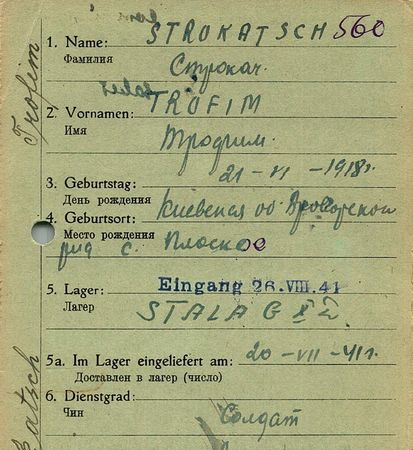 STROKATSCH 560
1. Name:
Фамилия
Строкач.
TROFIM
2. Vornamen:
Имя
Трофим.
21 - VI - 1918г.
3. Geburtstag:
День рождения
Киевская об
4. Geburtsort:
Место рождения
с. Плоское
Eingang 26.VIII.41
5. Lager:
Лагер
STALAG
5a. Im Lager eingeliefert am: 20-VII-41г.
Доставлен в лагер (число)
6. Dienstgrad:
Чин
Солдат
Trofim